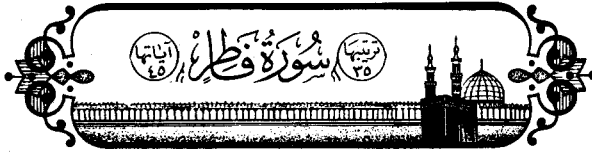 ترتيبها ٣٥ سُورَةُ فَاطِرٍ آياتها ٤٥